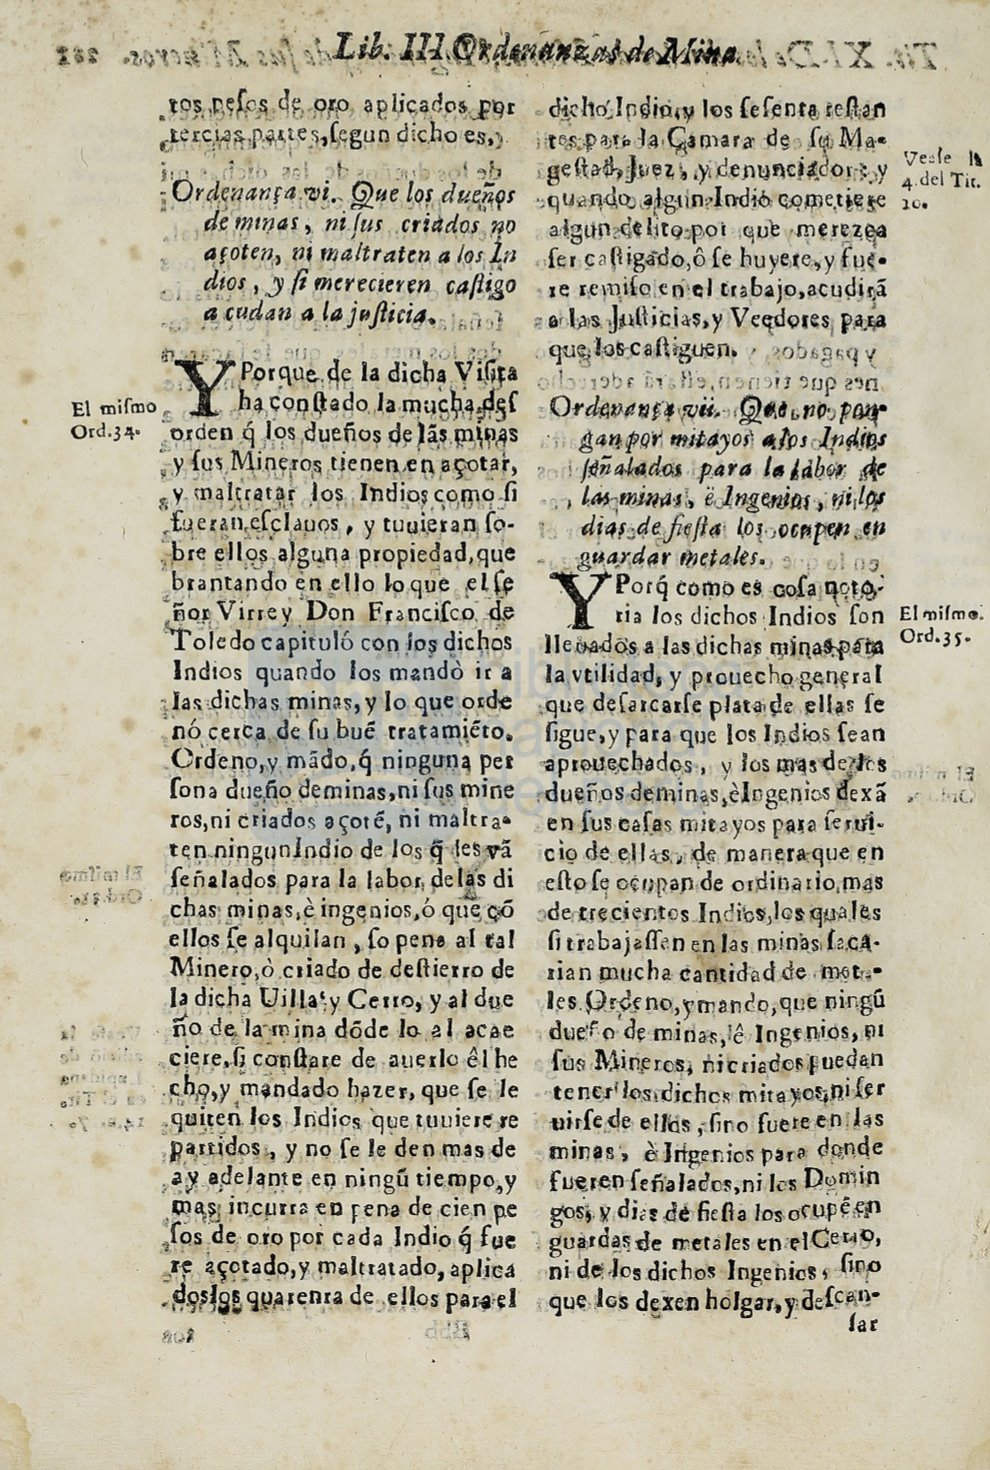 Lib. III Ordenanzas de Mina
tos pesos de oro aplicados por
tercias partes, segun dicho es,
Ordenança vi. Que los dueños
de minas, ni sus criados no
açoten, ni maltraten a los In
dios, y si merecieren castigo
acudan a la justicia.
El mismo
Ord.34.
Y Porque de la dicha Visita
ha constado la mucha des
orden q̃ los dueños de las minas
y sus Mineros tienen en açotar,
y maltratar los Indios como si
fueran esclauos, y tuuieran so-
bre ellos alguna propiedad, que
brantando en ello lo que el se
ñor Virrey Don Francisco de
Toledo capituló con los dichos
Indios quando los mandò ir a
las dichas minas, y lo que orde
nó cerca de su buē tratamiēto.
Ordeno, y mādo, q̃ ninguna per
sona dueño deminas, ni sus mine
ros, ni criados açotē, ni maltra-
ten ningunIndio de los q̃ les vā
señalados para la labor delas di
chas minas, è ingenios, ó que cō
ellos se alquilan, so pena al tal
Minero, ò criado de destierro de
la dicha Uilla, y Cerro, y al due
ño de la mina dōde lo al acae
ciere, si constare de auerlo êl he
cho, y mandado hazer, que se le
quiten los Indios que tuuiere re
partidos, y no se le den mas de
ay adelante en ningū tiempo, y
mas incurra en pena de cien pe
sos de oro por cada Indio q̃ fue
re açotado, y maltratado, aplica
doslos quarenta de ellos para el
dicho Indio, y los sesenta restan
tes para la Camara de su Ma-
gestad, Juez, y denunciador: y
quando algun Indio cometiere
algun delito por que merezca
ser castigado, ô se huyere, y fue-
re remiso en el trabajo, acudirā
a las Justicias, y Veedores para
que los castiguen.
Vease la
4. del Tit.
10.
Ordenança vii. Que no pon-
gan por mitayos a los Indios
señalados para la labor de
las minas, ë Ingenios, ni los
dias de fiesta los ocupen en
guardar metales.
Y Porq̃ como es cosa noto-
ria los dichos Indios son
lleuados a las dichas minas para
la vtilidad, y prouecho general
que desarcarse plata de ellas se
sigue, y para que los Indios sean
aprouechados, y los mas de los
dueños deminas, èIngenios dexā
en sus casas mitayos para serui-
cio de ellas, de manera que en
esto se ocupan de ordinario, mas
de trecientos Indios, los quales
si trabajassen en las minas saca-
rian mucha cantidad de meta-
les. Ordeno, y mando, que ningū
dueño de minas, ê Ingenios, ni
sus Mineros, ni criados puedan
tener los dichos mitayos, ni ser
uirse de ellos, sino fuere en las
minas, è Ingenios para donde
fueren señalados, ni los Domin
gos, y dias de fiesta los ocupē en
guardas de metales en el Cerro,
ni de los dichos Ingenios, sino
que los dexen holgar, y descan-
El mismo.
Ord.35.
sar